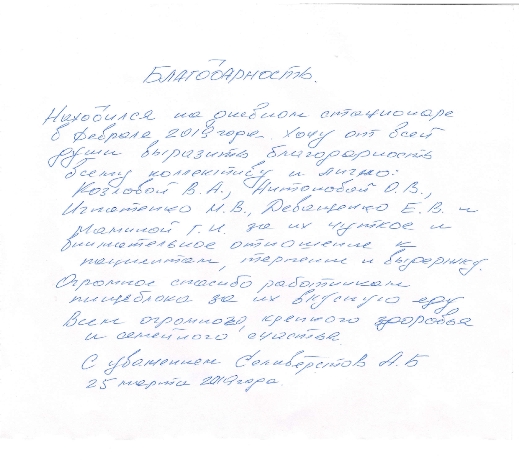 Благодарность.
Находился на дневном стационаре
в феврале 2019 года. Хочу от всей
души выразить благодарность
всему коллективу и лично:
Козловой В.А., Антоновой О.В.,
Игнатенко М.В., Деващенко Е.В. и
Маминой Г.И. за их чуткое и
внимательное отношение к
пациентам, терпение и выдержку.
Огромное спасибо работникам
пищеблока за их вкусную еду
Всем огромного, крепкого здоровья
и семейного счастья.
С уважением Селивёрстов А.Б
25 марта 2019 года.